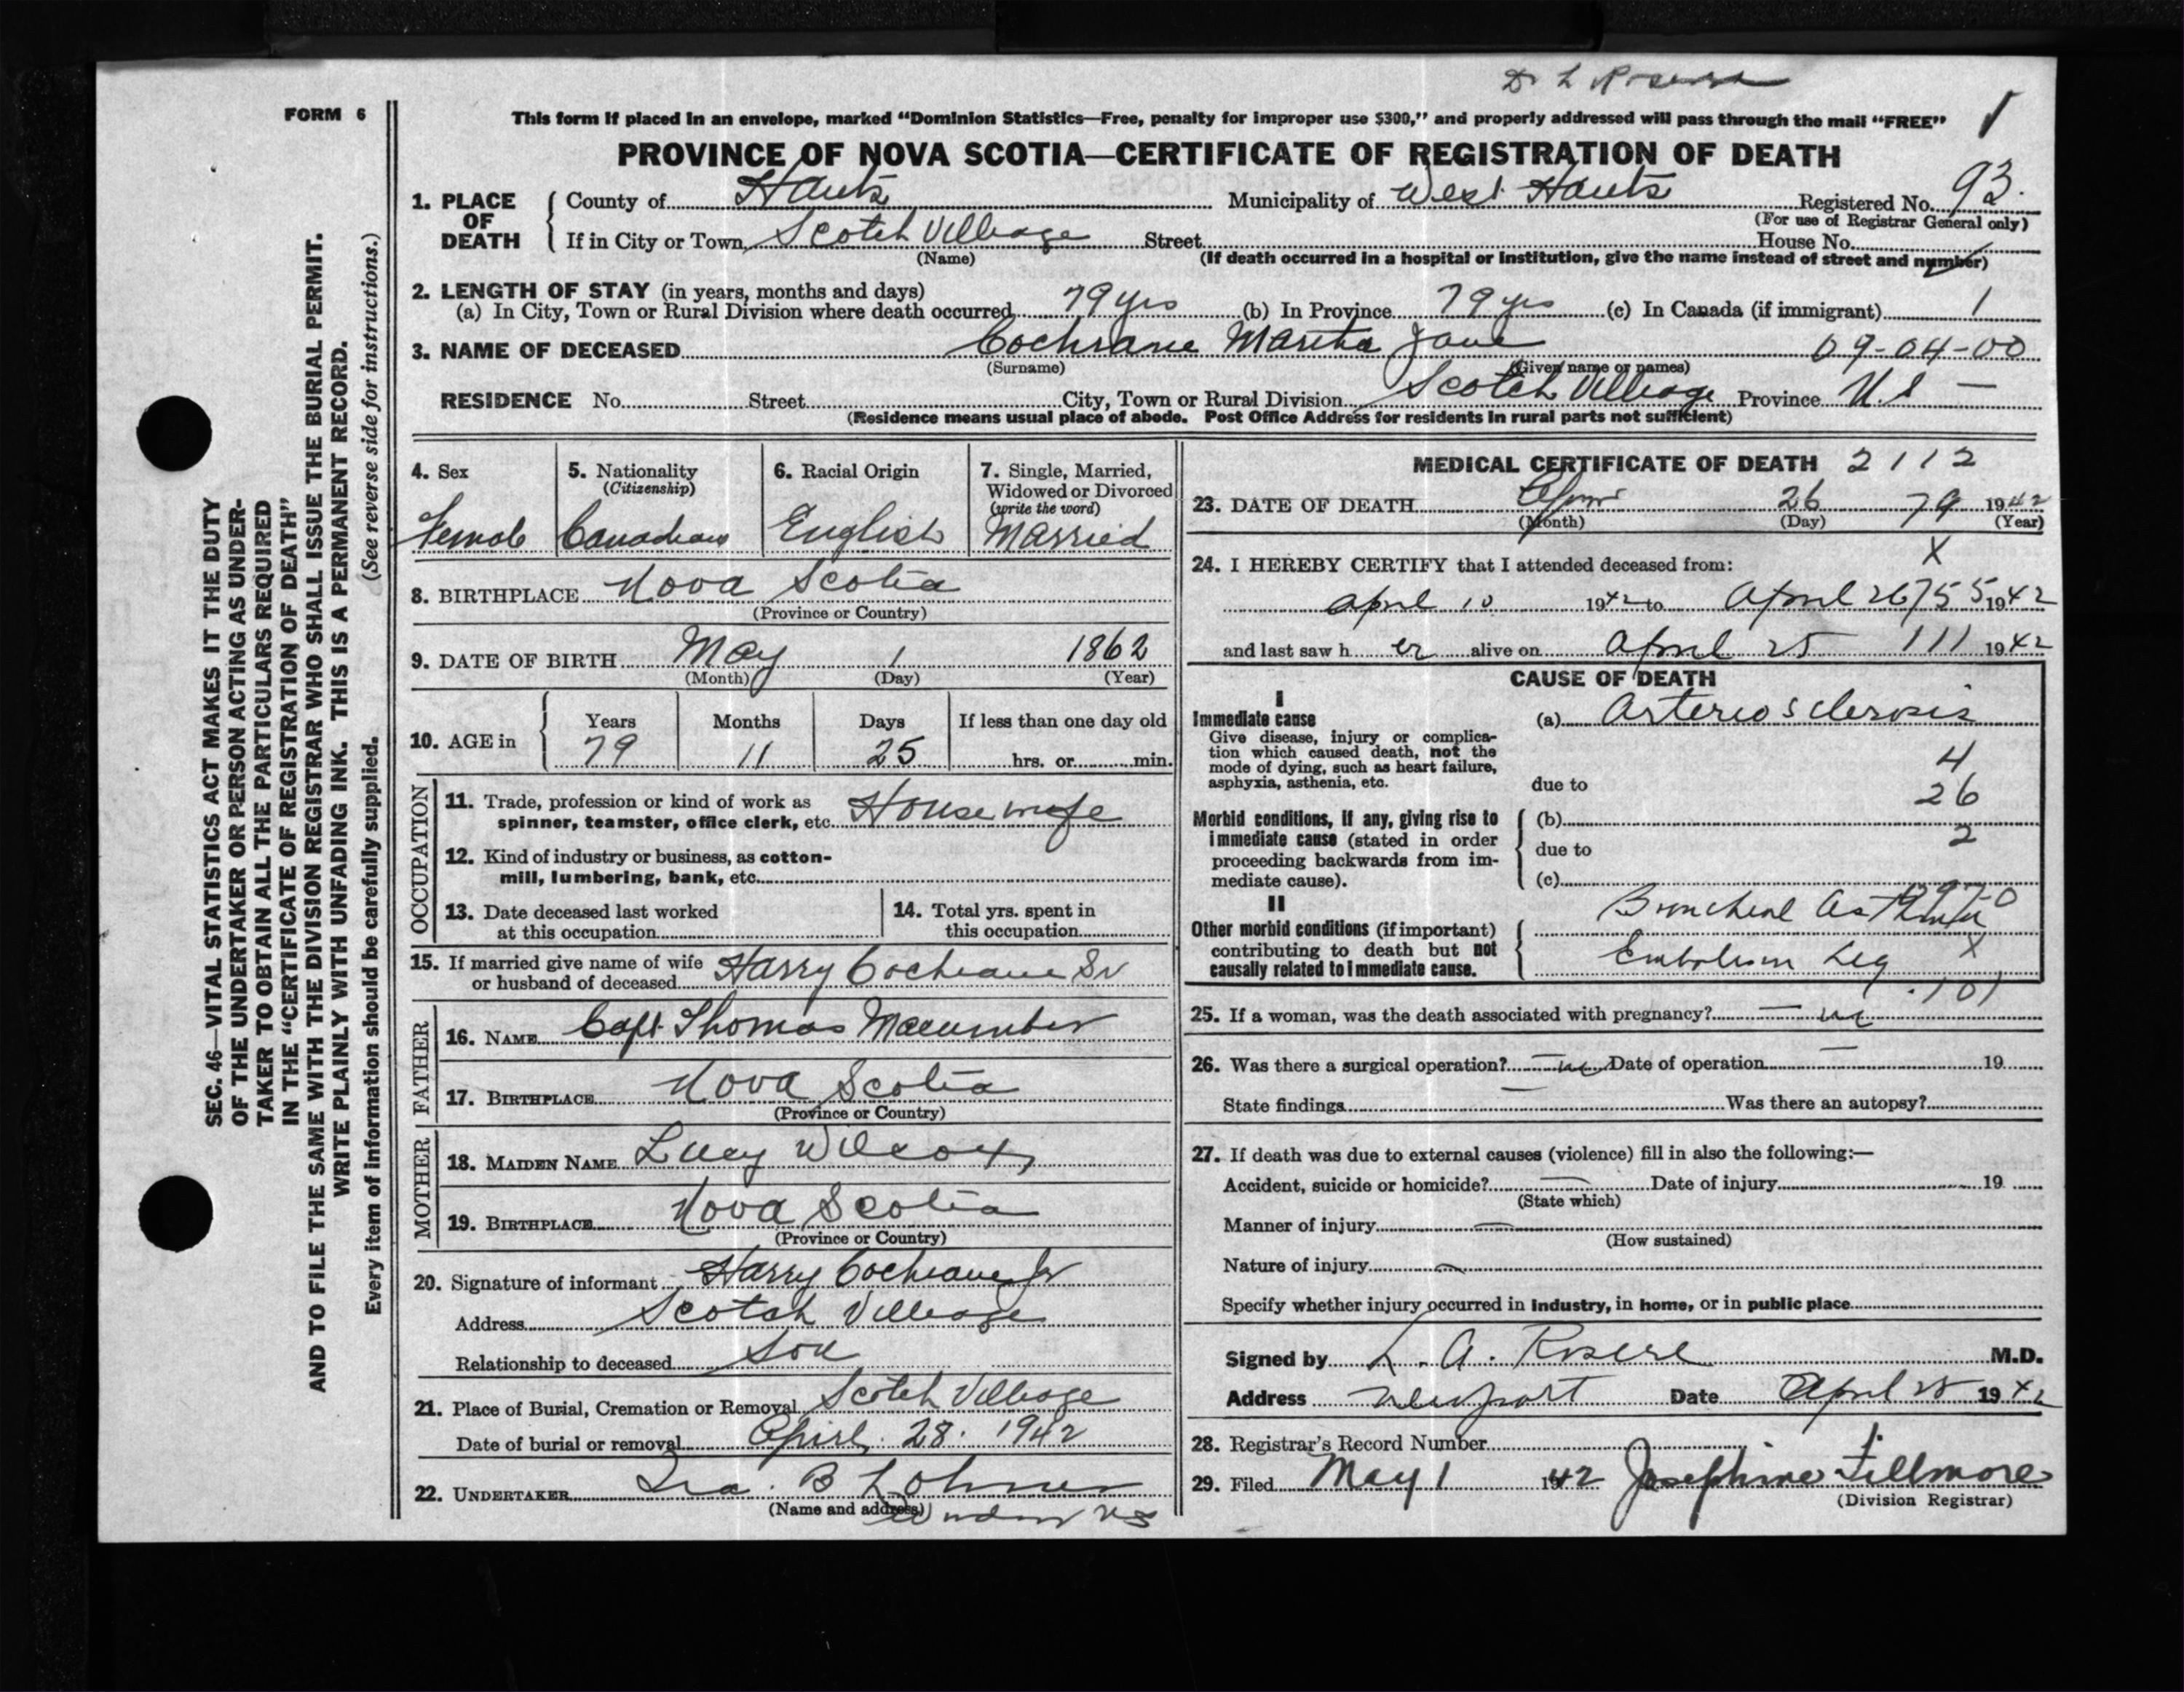 Dr L
FORM 6
This form if placed in an envelope, marked “Dominion Statistics—Free, penalty for improper use $300,” and properly addressed will pass through the mail “FREE”
PROVINCE OF NOVA SCOTIA—CERTIFICATE OF REGISTRATION OF DEATH
1. PLACE OF DEATH
County of Hants Municipality of West Hants Registered No. 93.
(For use of Registrar General only)
If in City or Town Scotch Village Street House No.
(Name) (If death occurred in a hospital or institution, give the name instead of street and number)
2. LENGTH OF STAY (in years, months and days)
(a) In City, Town or Rural Division where death occurred 79 yrs (b) In Province 79 yrs (c) In Canada (if immigrant) 1
3. NAME OF DECEASED Cochrane Martha Jane 09-04-00
(Surname) (Given name or names)
RESIDENCE No. Street City, Town or Rural Division Scotch Village Province N.S —
(Residence means usual place of abode. Post Office Address for residents in rural parts not sufficient)
4. Sex
Female
5. Nationality
(Citizenship)
Canadian
6. Racial Origin
English
7. Single, Married,
Widowed or Divorced
(write the word)
Married
8. BIRTHPLACE Nova Scotia
(Province or Country)
9. DATE OF BIRTH May 1 1862
(Month) (Day) (Year)
10. AGE in
Years Months Days If less than one day old
79 11 25 hrs. or min.
OCCUPATION
11. Trade, profession or kind of work as
spinner, teamster, office clerk, etc. Housewife
12. Kind of industry or business, as cotton-
mill, lumbering, bank, etc.
13. Date deceased last worked
at this occupation
14. Total yrs. spent in
this occupation
15. If married give name of wife
or husband of deceased Harry Cochrane Sr
FATHER
16. NAME Capt. Thomas Macumber
17. BIRTHPLACE Nova Scotia
(Province or Country)
MOTHER
18. MAIDEN NAME Lucy Wilcox
19. BIRTHPLACE Nova Scotia
(Province or Country)
20. Signature of informant Harry Cochrane Jr
Address Scotch Village
Relationship to deceased Son
21. Place of Burial, Cremation or Removal Scotch Village
Date of burial or removal April 28. 1942
22. UNDERTAKER Ira. B
(Name and address) Windsor NS
MEDICAL CERTIFICATE OF DEATH 2112
23. DATE OF DEATH April 26 79 1942
(Month) (Day) (Year)
24. I HEREBY CERTIFY that I attended deceased from: X
April 10 1942 to April 26 755 1942
and last saw her alive on April 25 111 1942
CAUSE OF DEATH
I
Immediate cause
Give disease, injury or complica-
tion which caused death, not the
mode of dying, such as heart failure,
asphyxia, asthenia, etc.
(a) Arterio sclerosis
4
due to
26
Morbid conditions, if any, giving rise to
immediate cause (stated in order
proceeding backwards from im-
mediate cause).
(b)
2
due to
(c)
II
Other morbid conditions (if important)
contributing to death but not
causally related to immediate cause.
Bronchial Asthma
Embolism Leg X
101
25. If a woman, was the death associated with pregnancy? — no
26. Was there a surgical operation? — no Date of operation — 19
State findings — Was there an autopsy?
27. If death was due to external causes (violence) fill in also the following:—
Accident, suicide or homicide? — Date of injury 19
(State which)
Manner of injury —
(How sustained)
Nature of injury —
Specify whether injury occurred in industry, in home, or in public place
Signed by L. A. M.D.
Address Newport Date April 28 1942
28. Registrar's Record Number
29. Filed May 1 1942 Josephine Fillmore
(Division Registrar)
SEC. 46—VITAL STATISTICS ACT MAKES IT THE DUTY
OF THE UNDERTAKER OR PERSON ACTING AS UNDER-
TAKER TO OBTAIN ALL THE PARTICULARS REQUIRED
IN THE “CERTIFICATE OF REGISTRATION OF DEATH”
AND TO FILE THE SAME WITH THE DIVISION REGISTRAR WHO SHALL ISSUE THE BURIAL PERMIT.
WRITE PLAINLY WITH UNFADING INK. THIS IS A PERMANENT RECORD.
Every item of information should be carefully supplied. (See reverse side for instructions.)